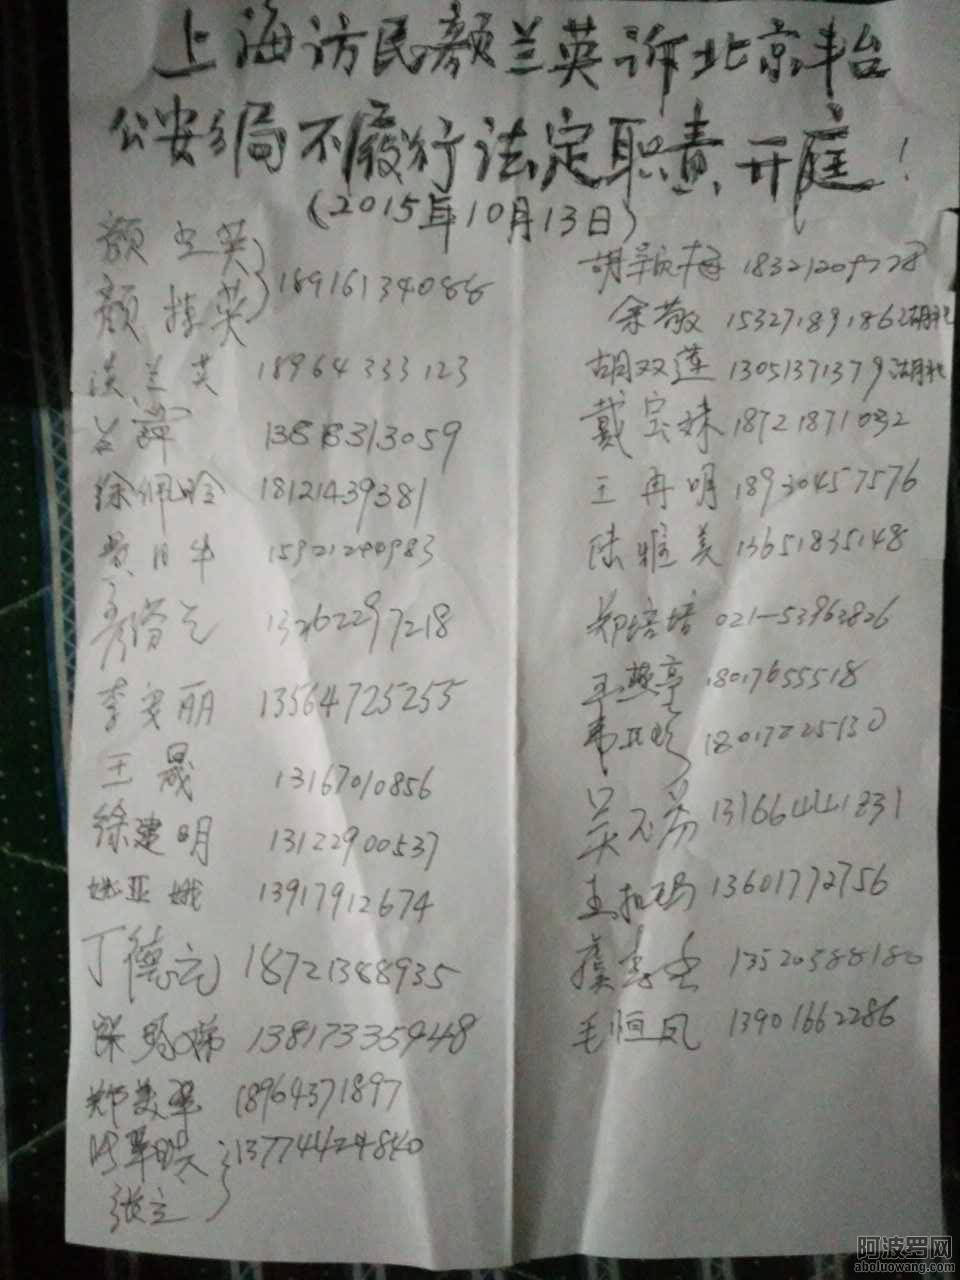 上海访民颜兰英诉北京丰台
公安分局不履行法定职责开庭！
（2015年10月13日）
颜兰英
颜桂英 18916134088
兰英 18964333123
13818313059
徐佩玲 18121439381
15921290983
13262297218
李安丽 13564725255
王晟 13167010856
徐建明 13122900537
姚亚娥 13917912674
丁德元 18721388935
13817335948
郑美翠 18964371897
13774424840
张立
胡 梅 18321209728
余敬 15327189186 湖北
胡双莲 13051371379 湖北
戴宝妹 18721871032
王再明 18930457576
陆雅美 13651835148
郑培培 021-53962826
王 亭 18017655518
18017225130
吴 13166441831
王扣玛 13601772756
13520588180
毛恒凤 13901662286
阿波罗网
aboluowang.com